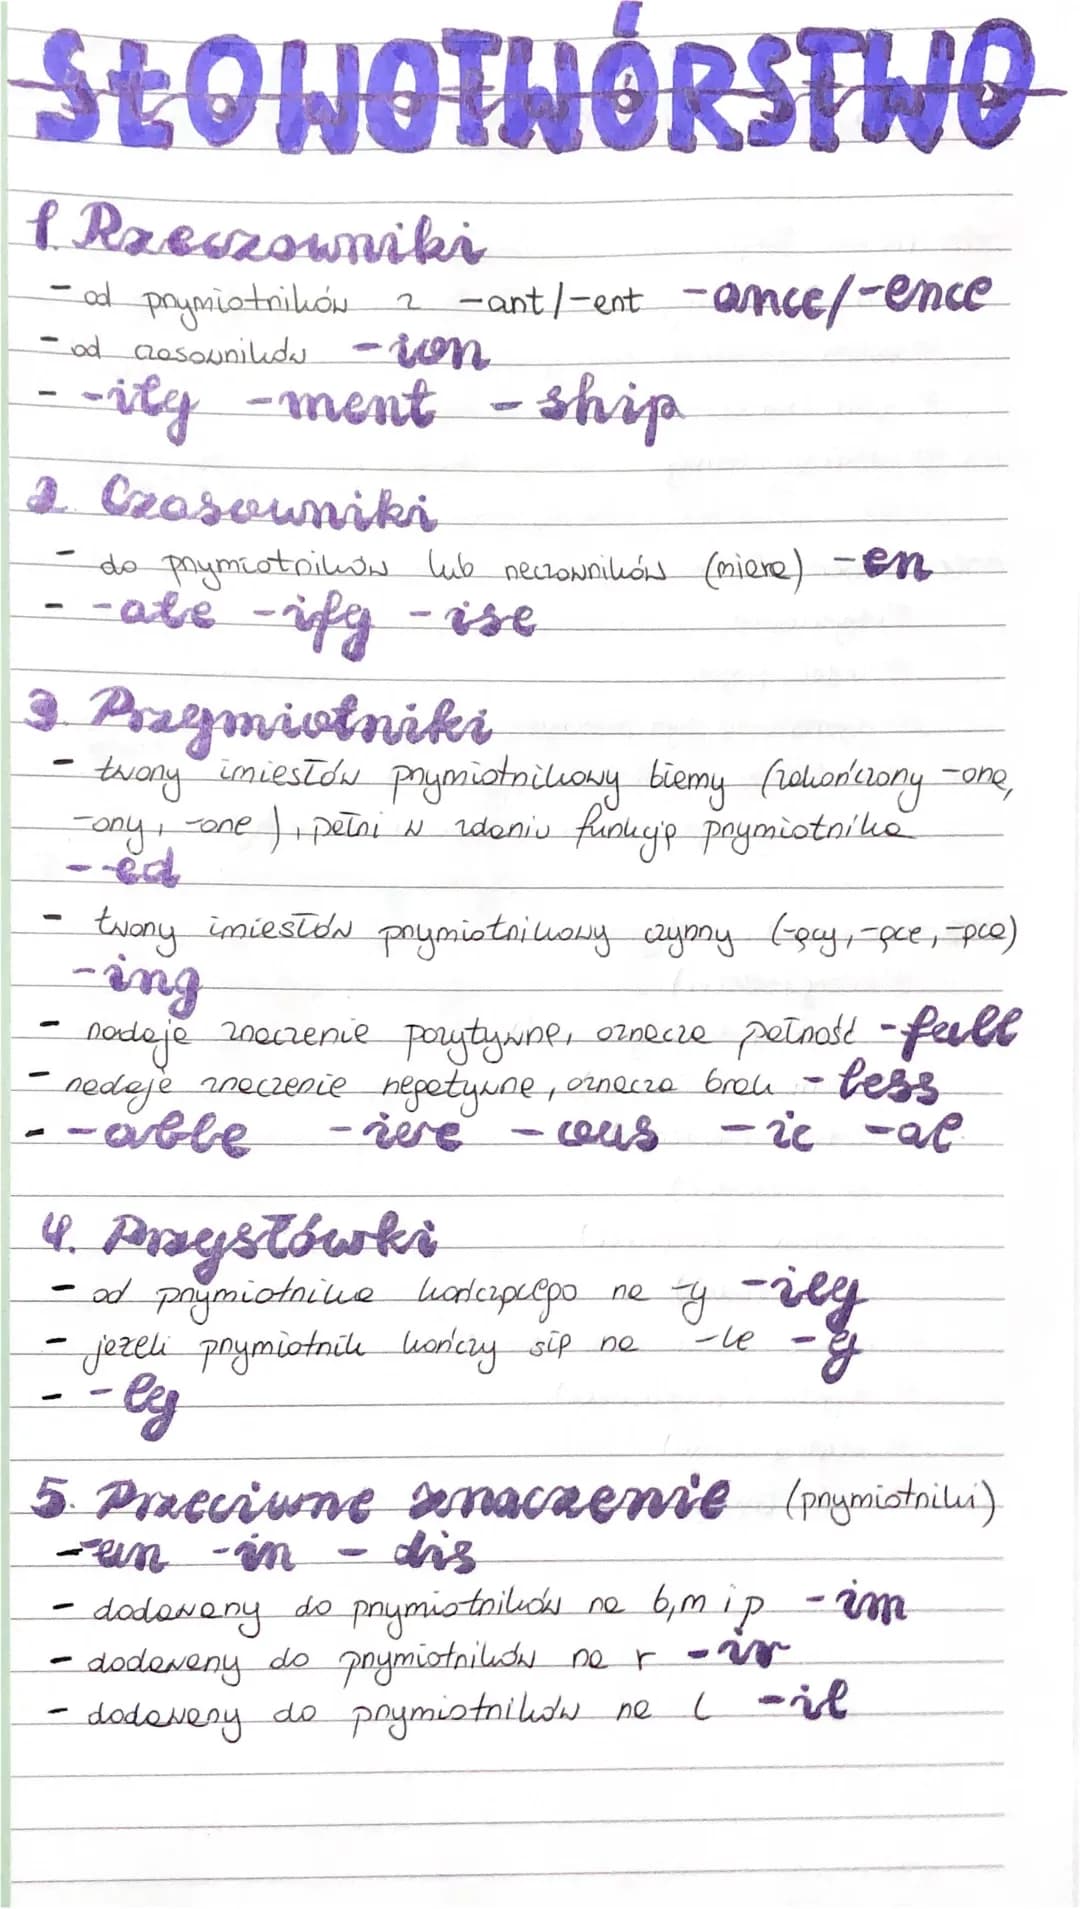 SŁOWOTWÓRSTWO
1. Rzeczowniki
- od przymiotników z -ant/-ent -ance/-ence
- od czasowników -ion
- -ity -ment -ship
2. Czasowniki
- do przymiotników lub rzeczowników (miara) -en
- -ate -ify -ise
3. Przymiotniki
- tworzy imiesłów przymiotnikowy bierny (zakończony -ona,
-ony, -one), pełni w zdaniu funkcję przymiotnika
- -ed
- tworzy imiesłów przymiotnikowy czynny (-ący, -ące, -ąca)
-ing
- nadaje znaczenie pozytywne, oznacza pełność -full
- nadaje znaczenie negatywne, oznacza brak -less
- -able -ive -ous -ic -al
4. Przysłówki
- od przymiotnika kończącego na -y -ily
- jeżeli przymiotnik kończy się na -le -y
- -ly
5. Przeciwne znaczenie (przymiotniki)
- -un -in - dis
- dodawany do przymiotników na b, m i p -im
- dodawany do przymiotników na r -ir
- dodawany do przymiotników na l -il